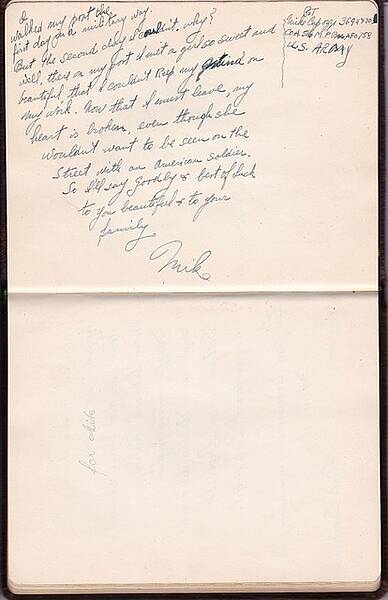 I
walked my post the
first day in a military way.
But the second day I couldn't. why?
Well, there on my post I met a girl so sweet and
beautiful, that I couldn't keep my mind on
my work. Now that I must leave, my
heart is broken, even though she
wouldn't want to be seen on the
street with an American soldier.
So I'll say goodby & best of luck
to you beautiful & to your
family.
Mike
Mike
Co A M.P. APO 758
U.S. ARMY
for Mik